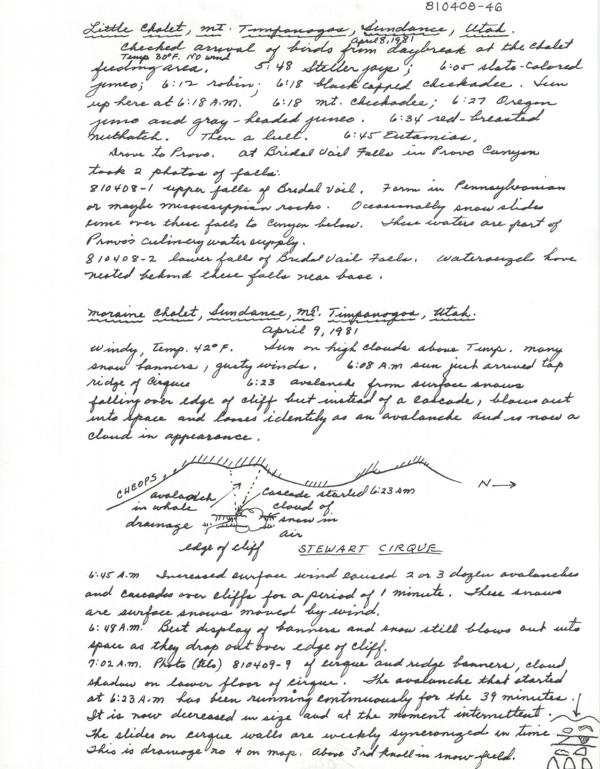 810408-46
Little Chalet, Mt. Timpanogos, Sundance, Utah.
April 8, 1981
Checked arrival of birds from daybreak at the Chalet
Temp 30°F. No wind
feeding area. 5:48 Steller jays; 6:05 slate-colored
junco; 6:12 robin; 6:18 black capped chickadee. Sun
up here at 6:18 A.M. 6:18 mt. chickadee; 6:27 Oregon
junco and gray-headed junco. 6:34 red-breasted
nuthatch. Then a lull. 6:45 Eutamias.
Drove to Provo. At Bridal Vail Falls in Provo Canyon
took 2 photos of falls.
810408-1 upper falls of Bridal Vail. Form in Pennsylvanian
or maybe Mississippian rocks. Occasionally snow slides
come over these falls to Canyon below. These waters are part of
Provo's culinery water supply.
810408-2 lower falls of Bridal Vail Falls. Waterouzels have
nested behind these falls near base.
Moraine Chalet, Sundance, Mt. Timpanogos, Utah.
April 9, 1981
Windy, Temp. 42°F. Sun on high clouds above Timp. Many
snow banners, gusty winds. 6:08 A.M sun just arrived top
ridge of Cirque 6:23 avalanche from surface snows
falling over edge of cliff but instead of a cascade, blows out
into space and looses identity as an avalanche and is now a
cloud in appearance.
CHEOPS
avalanch
in whole
drainage
Cascade started 6:23 AM
cloud of
snow in
air
N→
edge of cliff
STEWART CIRQUE
6:45 A.M Increased surface wind caused 2 or 3 dozen avalanches
and cascades over cliffs for a period of 1 minute. These snows
are surface snows moved by wind.
6:48 A.M. Best display of banners and snow still blows out into
space as they drop out over edge of cliff.
7:02 A.M. Photo (tele) 810409-9 of cirque and ridge banners, cloud
shadow on lower floor of cirque. The avalanche that started
at 6:23 A.M has been running continuously for the 39 minutes.
It is now decreased in size and at the moment intermittent.
The slides on cirque walls are weekly syncronized in time
This is drainage no 4 on map. Above 3rd knoll in snow field.